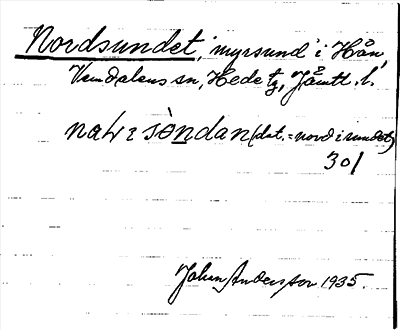 Nordsundet, myrsund i Hån,
Vemdalens sn, Hede tg, Jämtl. l.
i sön dan (dat. = nord i sundet)
301
Johan Andersson 1935.